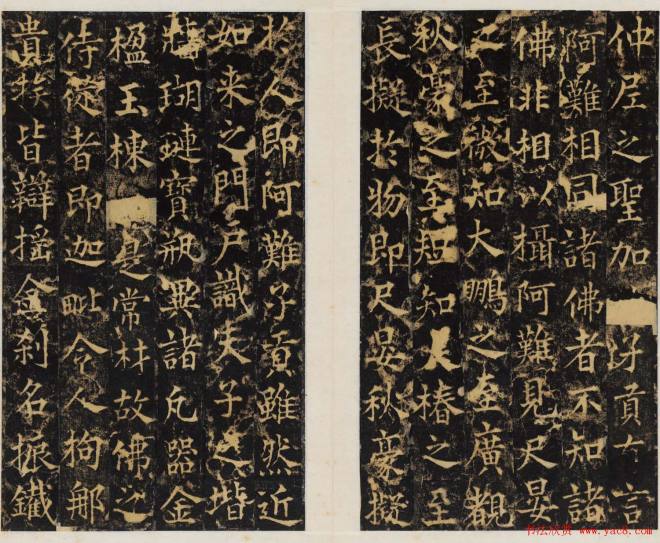 仲尼之聖加子貢有言
阿難相同諸佛者不知諸
佛非相以攝阿難見尺晏
之至微知大鵬之至廣觀
秋豪之至短知大椿之至
長擬於物即尺晏秋豪擬
於人即阿難子貢雖然近
如来之門户識夫子之堦
瑚璉寶瓶異諸凡器金
楹玉棟是常材故佛之
侍從者即迦毗令人狗
貴族皆辯揺金刹名振鐵
书法欣赏 www.yac8.com